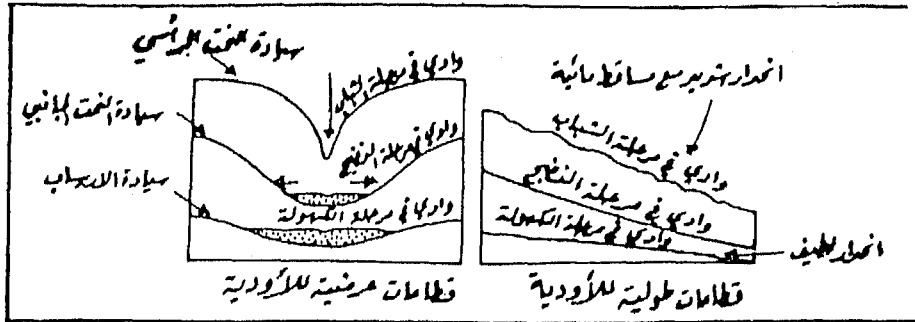 سيادة النحت الرأسي
وادي في مرحلة الشباب
سيادة النحت الجانبي
وادي في مرحلة النضج
سيادة الارساب
وادي في مرحلة الكهولة
قطاعات عرضية للأودية
انحدار شديد مع مساقط مائية
وادي في مرحلة الشباب
وادي في مرحلة النضج
وادي في مرحلة الكهولة
انحدار لطيف
قطاعات طولية للأودية